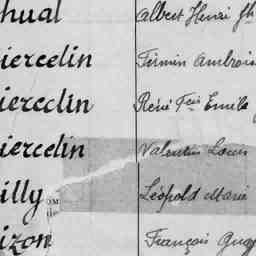 hual Albert Henri Jh
iercelin Firmin Ambrois
iercelin René Fçois Emile
iercelin Valentin Louis
illy Léopold Marie
izon François Augu